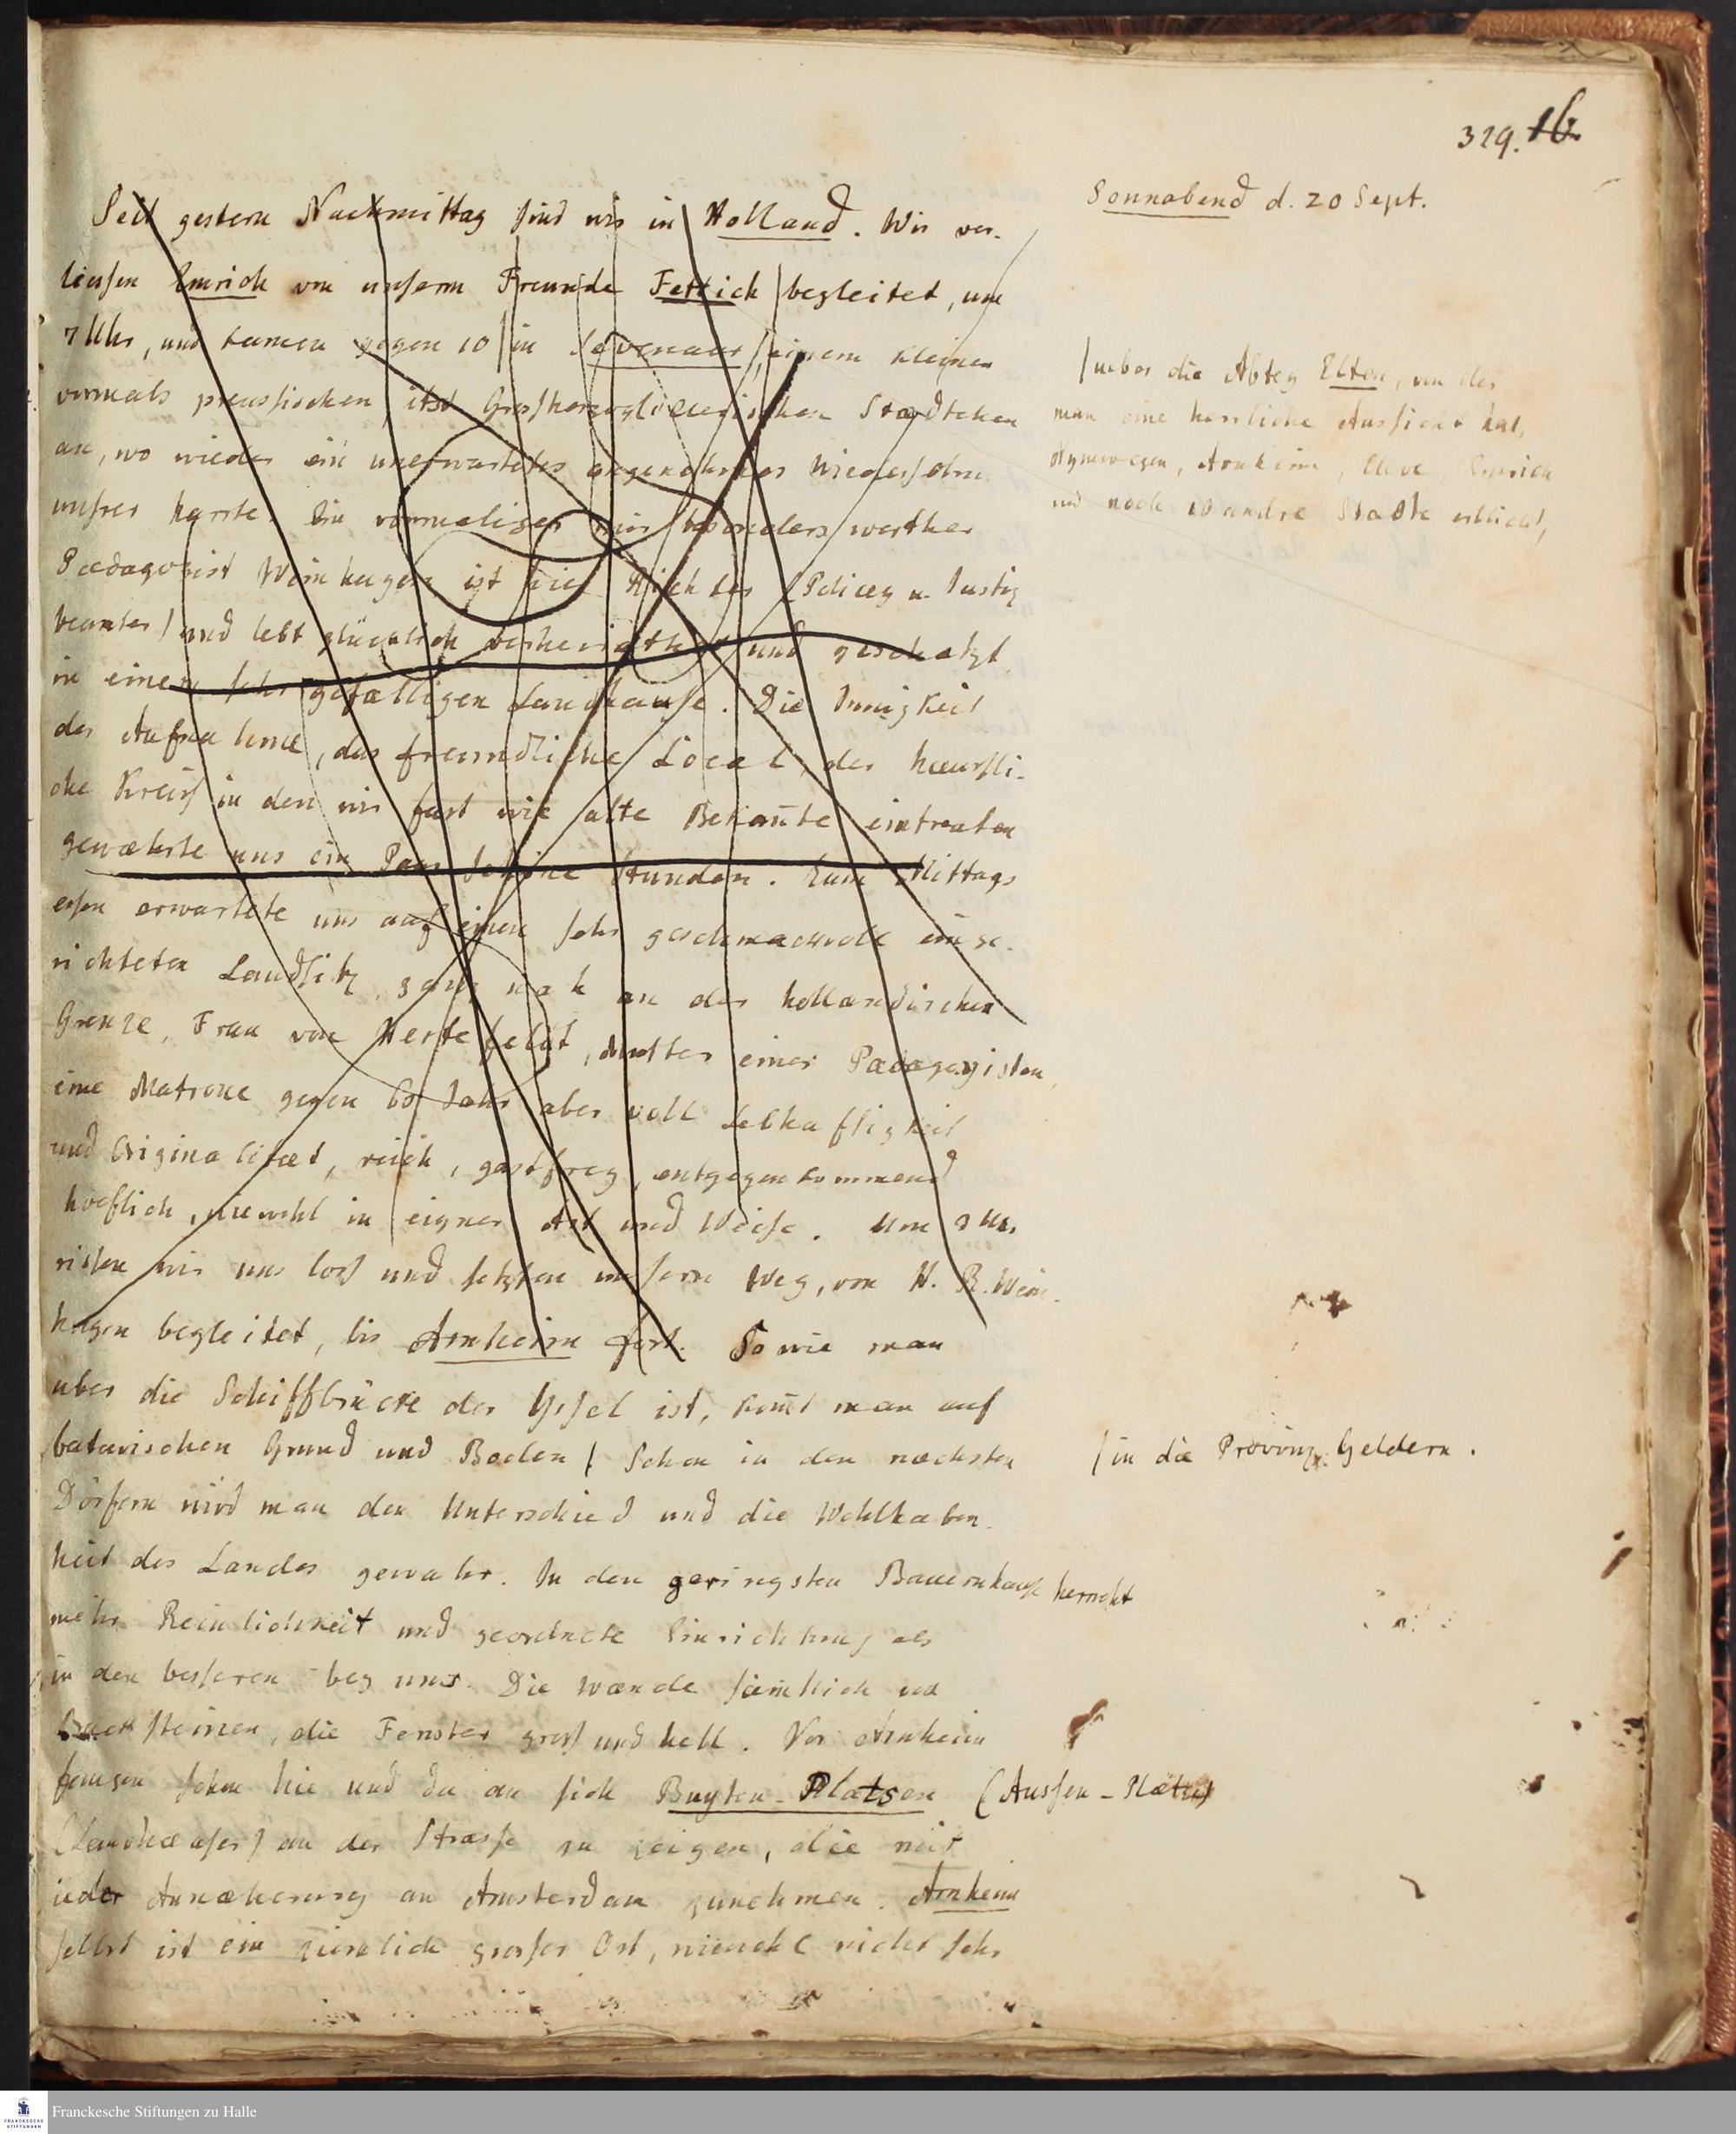 329. 16
Sonnabend d. 20 Sept.
Seit gestern Nachmittag sind wir in Holland. Wir ver-
liessen Emrich von unserm Freunde Fettich begleitet, um
7 Uhr, und kamen gegen 10 in Sevenaar, einem kleinen
vormals preussischen, itzt Grossherzoglichen Stædtchen
an, wo wieder ein unerwartetes angenehmes Wiedersehn
unsrer harrte. Ein vormaliger mir besonders werther
Pædagogist Weinhagen ist hier Richter (Policey u. Justiz
beamter) und lebt glücklich verheirathet und geschatzt
in einem sehr gefælligen Landhause. Die Innigkeit
der Aufnahme, das freundliche Local, der hæusli-
che Kreis in den wir fast wie alte Bekañte eintraten
gewæhrte uns ein Paar schöne Stunden. Zum Mittags
essen erwartete uns auf einem sehr geschmackvoll einge-
richteten Landsitz, ganz nah an der hollandischen
Grenze, Frau von Hertefeldt, Mutter eines Pædagogisten,
eine Matrone gegen 60 Jahr aber voll Lebhaftigkeit
und Originalitæt, reich, gastfrey, entgegenkommend
hoeflich, wiewohl in eigner Art und Weise. Um 3 Uhr
rissen wir uns los und setzten unsern Weg, von H. R. Wein-
hagen begleitet, bis Arnheim fort. So wie man
uber die Schiffbrücke der Yssel ist, komt man auf
batavischen Grund und Boden / Schon in den næchsten
Dörfern wird man den Unterschied und die Wohlhaben-
heit des Landes gewahr. In den geringsten Bauernhause herrscht
mehr Reinlichkeit und geordnete Einrichtung als
in den besseren bey uns. Die Wænde sämtlich von
Backsteinen, die Fenster gross und hell. Vor Arnheim
fangen schon hie und da an sich Buyten-Platsen (Aussen-Plætze)
(Landhæuser) an der Strasse zu zeigen, die mit
jeder Annæherung an Amsterdam zunehmen. Arnheim
selbst ist ein zierlich grosser Ort, wiewohl nicht sehr
/ uber die Abtey Elten, von der
man eine herrliche Aussicht hat,
Nymwegen, Arnheim, Cleve, Emrich
und noch 10 andre Stædte erblickt,
/ in die Provinz Geldern.
Franckesche Stiftungen zu Halle
FRANCKESCHE
STIFTUNGEN